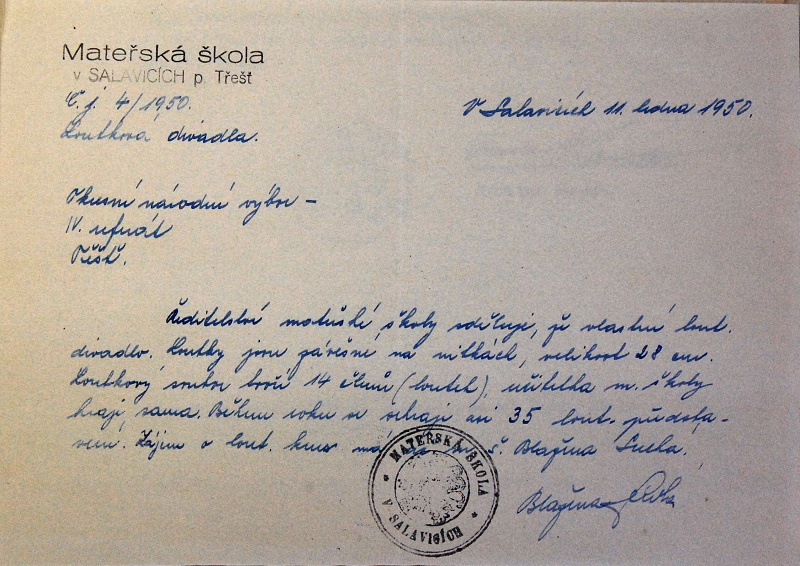 Mateřská škola
v SALAVICÍCH p. Třešť
Č. j. 4/1950.
V Salavicích 11. ledna 1950.
Loutková divadla.
Okresní národní výbor –
IV. referát
Třešť.
Ředitelství mateřské školy sděluje, že vlastní lout.
divadlo. Loutky jsou závěsné na nitkách, velikost 28 cm.
Loutkový soubor tvoří 14 členů (loutek), učitelka m. školy
hraje sama. Během roku se sehraje asi 35 lout. představ-
sení. Zájem o lout. kurs má š. Blažena
Blažena
MATEŘSKÁ ŠKOLA
V SALAVICÍCH